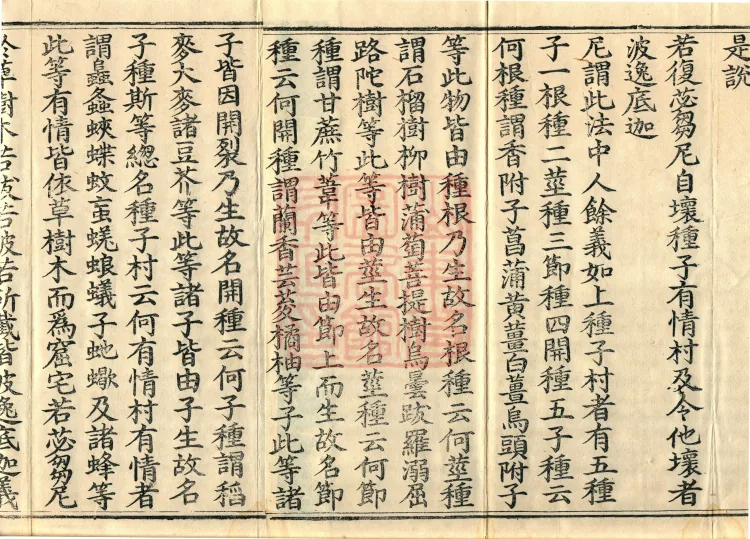 是說
若復苾芻尼自壞種子有情村及令他壞者
波逸底迦
尼謂此法中人餘義如上種子村者有五種
子一根種二莖種三節種四開種五子種云
何根種謂香附子菖蒲黃薑白薑烏頭附子
等此物皆由種根乃生故名根種云何莖種
謂石榴樹柳樹蒲萄菩提樹烏曇跋羅溺屈
路陀樹等此等皆由莖生故名莖種云何節
種謂甘蔗竹葦等此皆由節上而生故名節
種云何開種謂蘭香芸荾橘柚等子此等諸
子皆因開裂乃生故名開種云何子種謂稻
麥大麥諸豆芥等此等諸子皆由子生故名
子種斯等緫名種子村云何有情村有情者
謂蟲螽蛺蝶蚊䖟蜣蜋蟻子虵蠍及諸蜂等
此等有情皆依草樹木而爲窟宅若苾芻尼
於草樹木若拔若破若斫截皆波逸底迦義